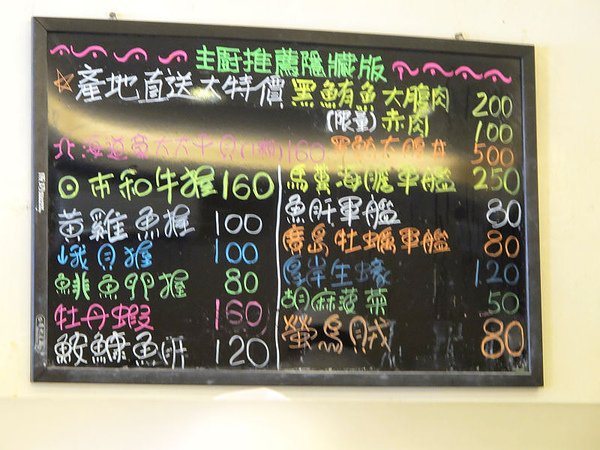 主廚推薦隱藏版
☆產地直送大特價 黑鮪魚大腹肉 200
(限量)赤肉 100
北海道 大大干貝(1顆)160
500
⊙本和牛握 160
黃雞魚握 100
峨貝握 100
鯡魚卵握 80
牡丹蝦 160
鮟鱇魚肝 120
馬糞海膽軍艦 250
魚肝軍艦 80
廣島牡蠣軍艦 80
厚岸生蠔 120
胡麻菠菜 50
螢烏賊 80